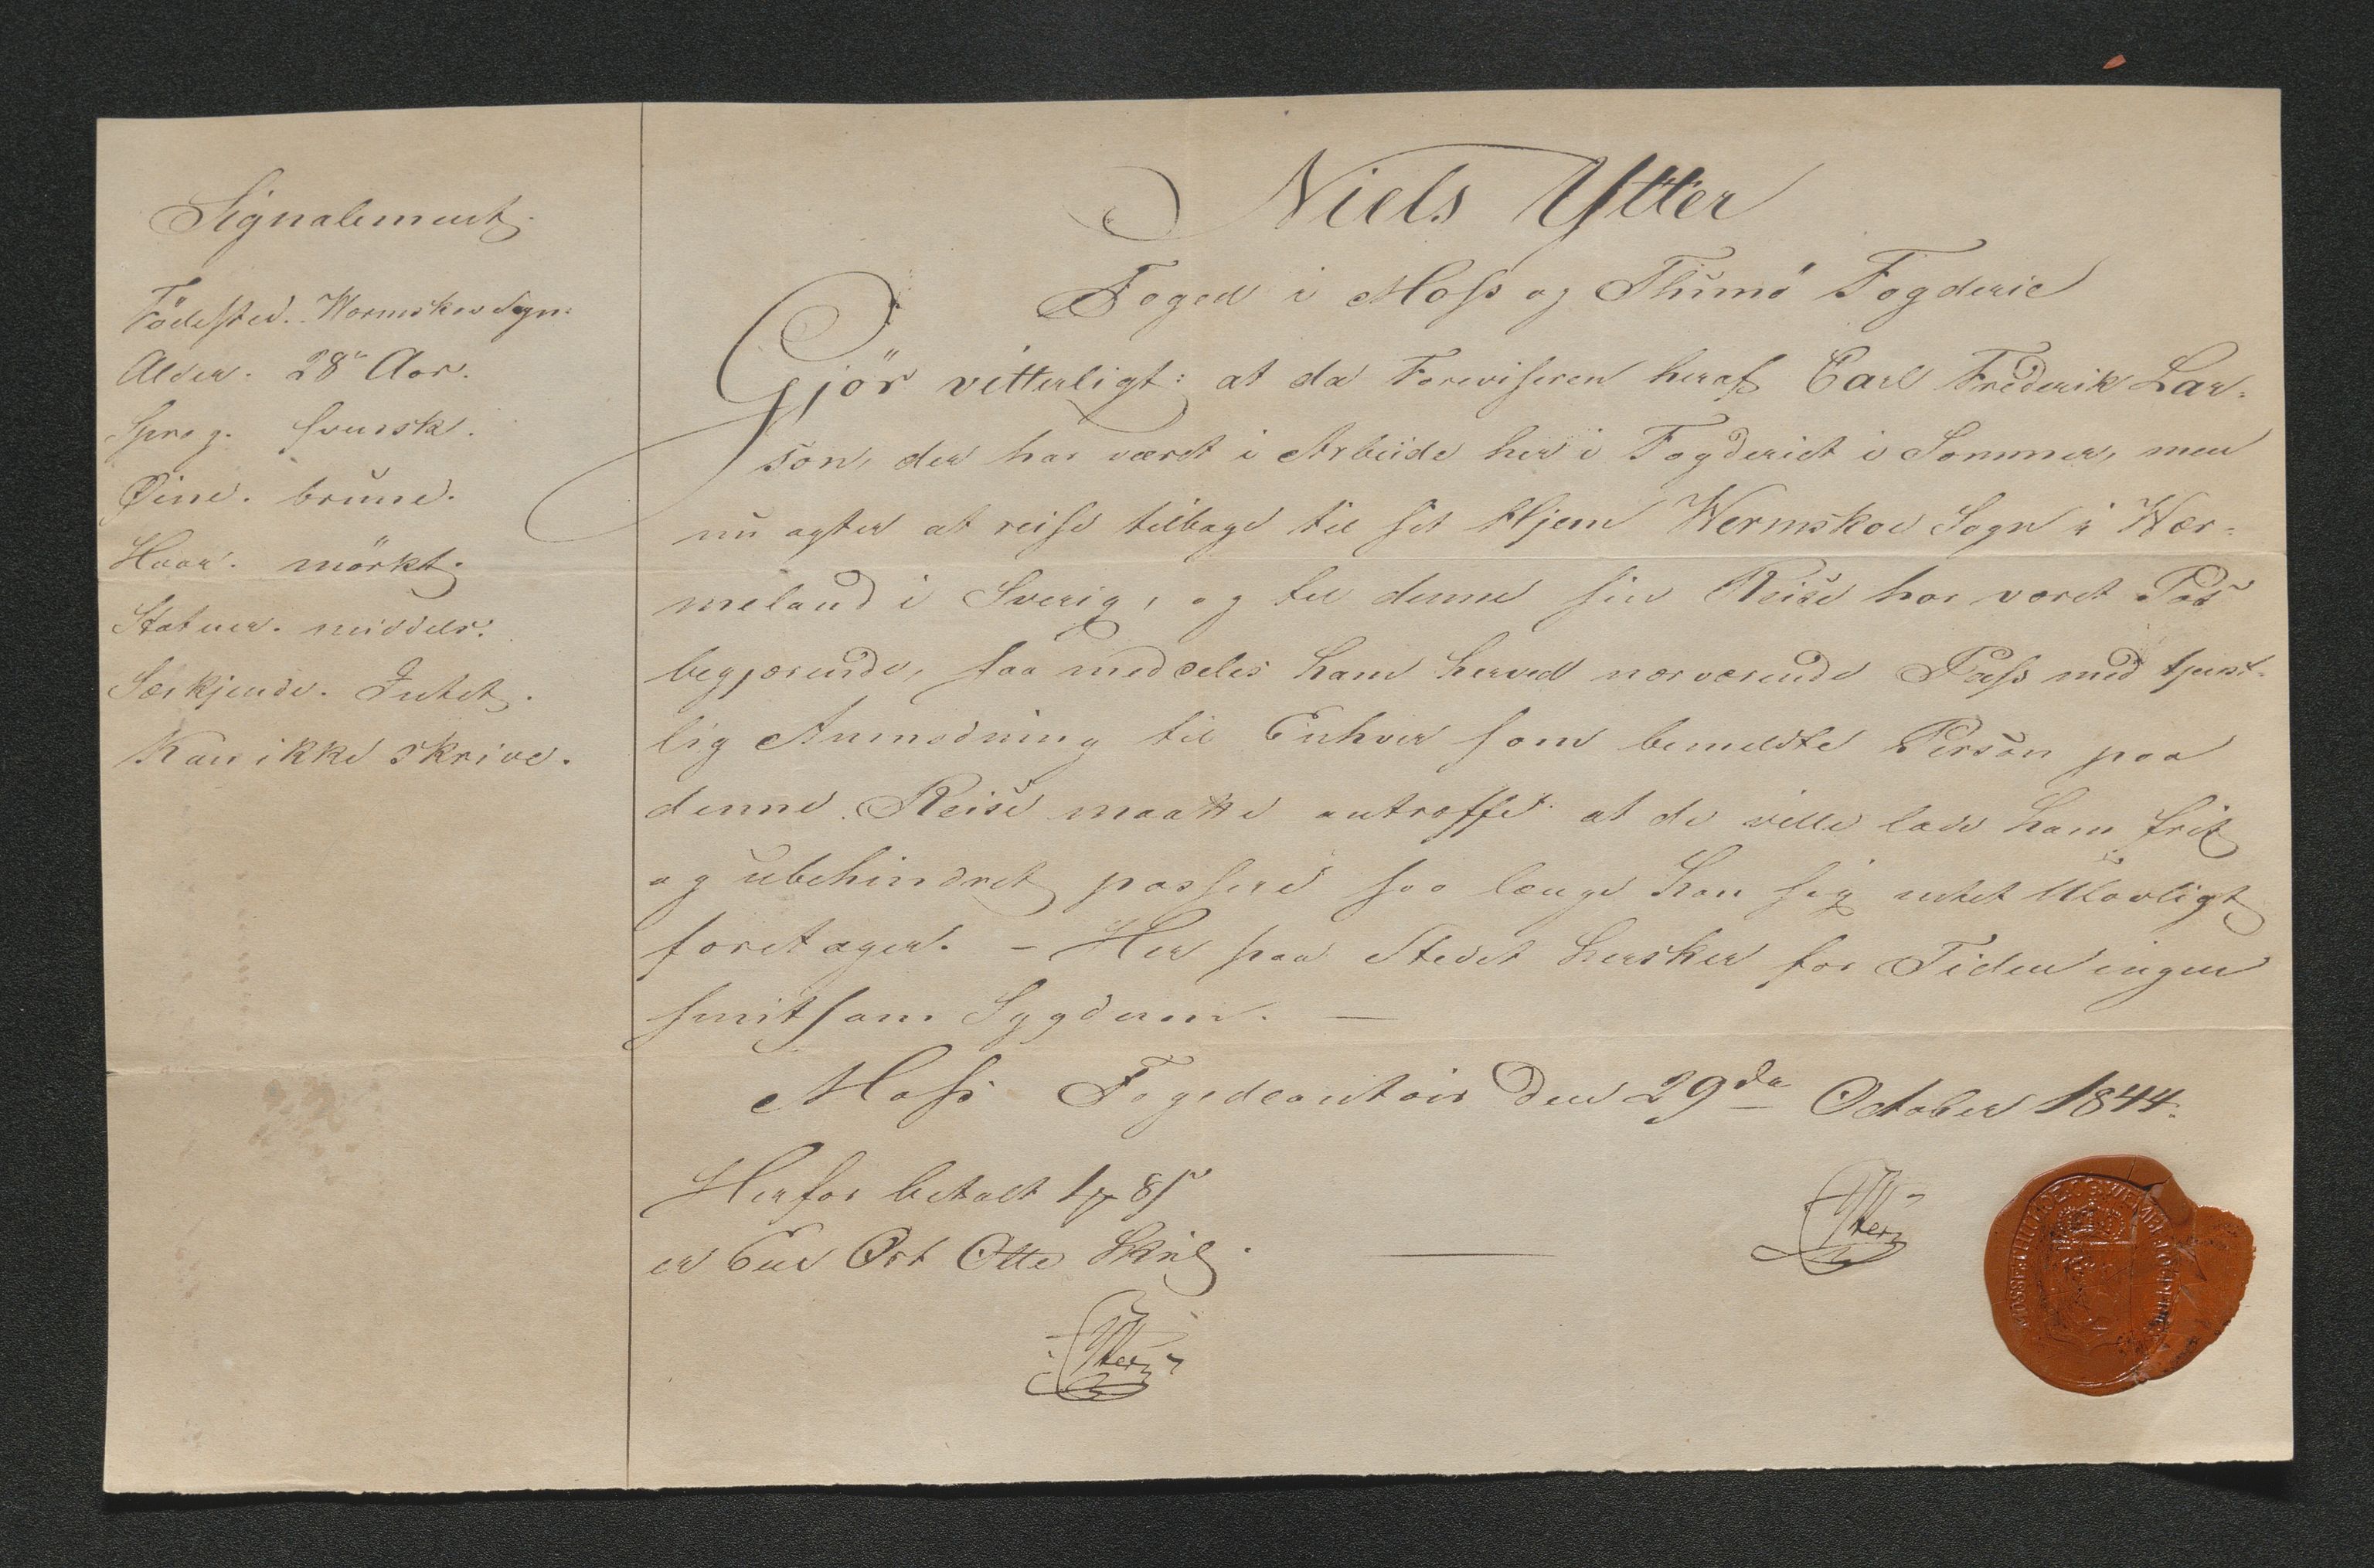 Signalement.
Födested. Wermskov Sogn.
Alder. 28 Aar.
Sprog. svensk.
Øine. brune.
Haar. mörkt.
Statuer. middels.
Særkjende. Intet.
Kan ikke skrive.
Niels Ytter
Foged i Moss og Thumö Fogderie
Gjör vitterligt: at da Foreviseren heraf Carl Frederik Lar-
son, der har været i Arbeide her i Fogderiet i Sommer, men
nu agter at reise tilbage til sit Hjem Wermskov Sogn i Wær-
meland i Sverig, og til denne sin Reise har været Pas
begjærende, saa meddeles ham herved nærværende Pass med tjenst-
lig Anmodning til Enhver som bemeldte Person paa
denne Reise maatte antræffe at de ville lade ham frit
og ubehindret passere saa længe han sig intet Ulovligt
foretager. - Her paa Stedet hersker for Tiden ingen
smitsom Sygdom. —
Moss Fogedcontoir den 29de October 1844.
Herfor betalt 1 8
er Een Ort Otte Skill.
Ytter
Ytter